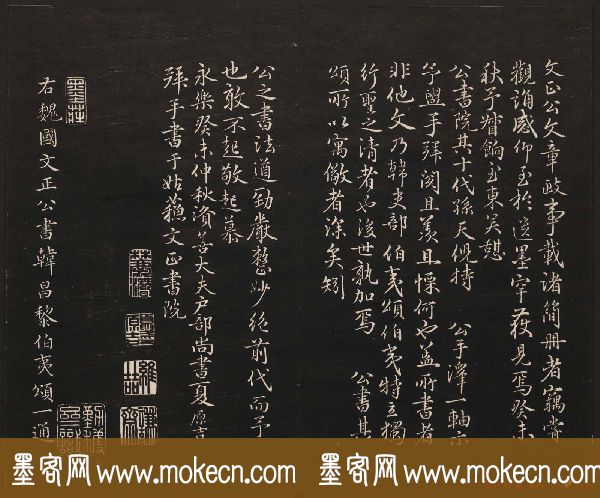 文正公文章政事載諸簡冊者竊嘗
觀誦感仰至於遺墨罕獲見焉癸未
秋予督餉至東吳憇
公書院其十代孫天倪持 公手澤一軸示
予盥手拜閱且羨且慄何也蓋所書者
非他文乃韓吏部伯夷頌伯夷特立獨
行聖之清者也後世孰加焉 公書其
頌所以寓儆者深矣矧
公之書法遒勁嚴整妙絶前代而予
也敢不起敬起慕
永樂癸未仲秋資善大夫戶部尚書夏原吉
拜手書于姑蘓文正書院
右魏國文正公書韓昌黎伯夷頌一通
墨客网 www.mokecn.com 墨客网 www.mokecn.com